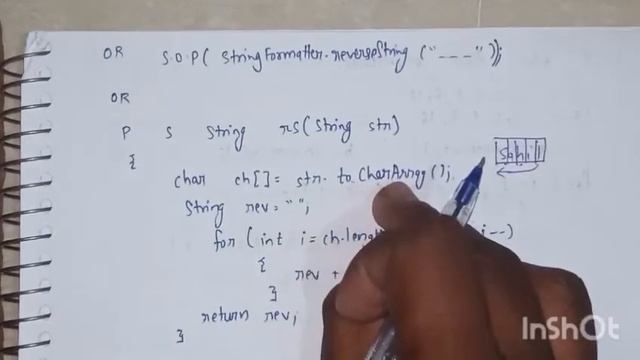 OR S.O.P( StringFormatter.reverseString ("---"));
OR
P S String rs(String str)
{
char ch[]= str.toCharArray();
String rev="";
sahil
for (int i=ch.length i--)
{
rev +
}
return rev;
}
InShOt